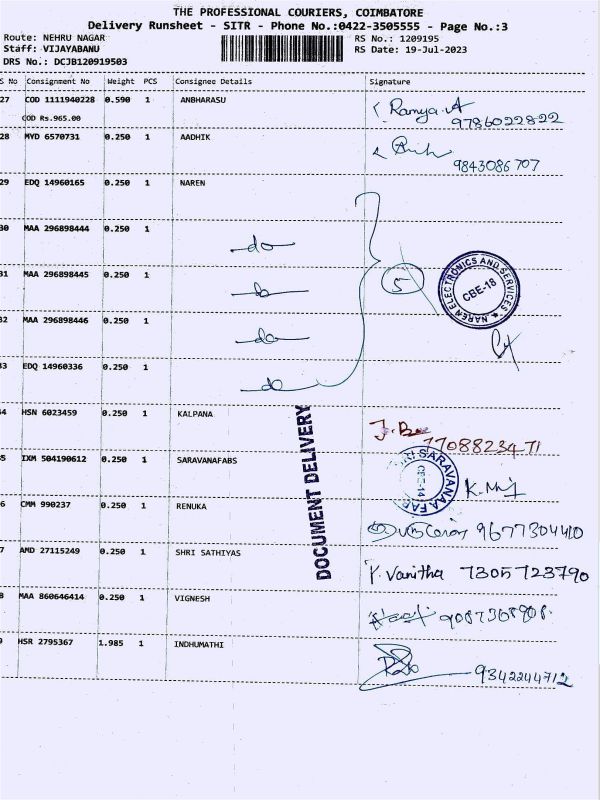 THE PROFESSIONAL COURIERS, COIMBATORE
Delivery Runsheet - SITR - Phone No.:0422-3505555 - Page No.:3
Route: NEHRU NAGAR RS No.: 1209195
Staff: VIJAYABANU RS Date: 19-Jul-2023
DRS No.: DCJB120919503
S No Consignment No Weight PCS Consignee Details Signature
27 COD 1111940228 0.590 1 ANBHARASU Ramya.A
COD Rs.965.00 9786022822
28 MYD 6570731 0.250 1 AADHIK
9843086707
29 EDQ 14960165 0.250 1 NAREN
30 MAA 296898444 0.250 1
do
31 MAA 296898445 0.250 1 5
do
NAREN ELECTRONICS AND SERVICES
CBE-18
32 MAA 296898446 0.250 1
do
33 EDQ 14960336 0.250 1
do
4 HSN 6023459 0.250 1 KALPANA
7708823471
5 IXM 504190612 0.250 1 SARAVANAFABS
SARAVANAA FAB
DOCUMENT DELIVERY
6 CMM 990237 0.250 1 RENUKA
9677304410
7 AMD 27115249 0.250 1 SHRI SATHIYAS
P. Vanitha 7305723790
8 MAA 860646414 0.250 1 VIGNESH
9087368908.
9 HSR 2795367 1.985 1 INDHUMATHI
9342244712